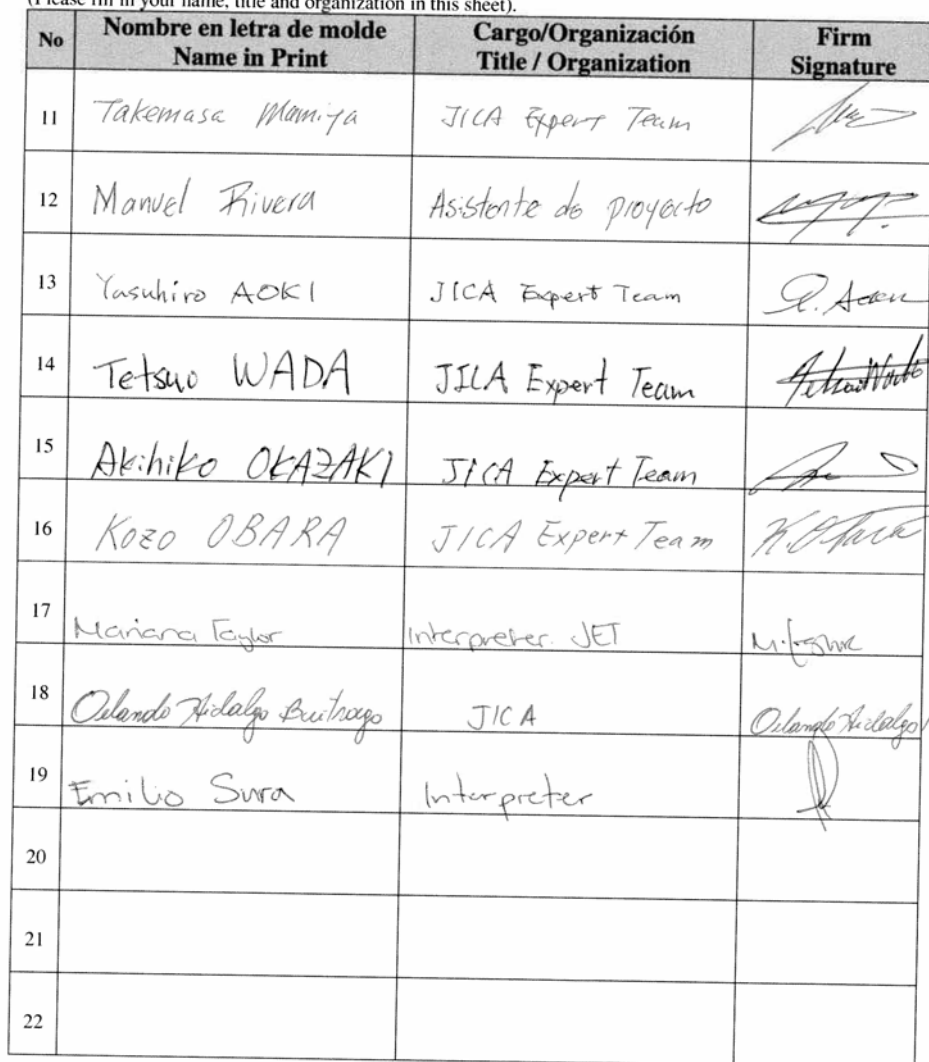 (Please fill in your name, title and organization in this sheet).
No Nombre en letra de molde Cargo/Organización Firm
Name in Print Title / Organization Signature
11 Takemasa Mamiya JICA Expert Team
12 Manuel Rivera Asistente de proyecto
13 Yasuhiro AOKI JICA Expert Team
14 Tetsuo WADA JICA Expert Team Tetsuo Wada
15 Akihiko OKAZAKI JICA Expert Team
16 Kozo OBARA JICA Expert Team K. Obara
17 Mariana Taylor Interpreter. JET
18 Orlando Hidalgo Buitrago JICA Orlando Hidalgo
19 Emilio Sura Interpreter
20
21
22